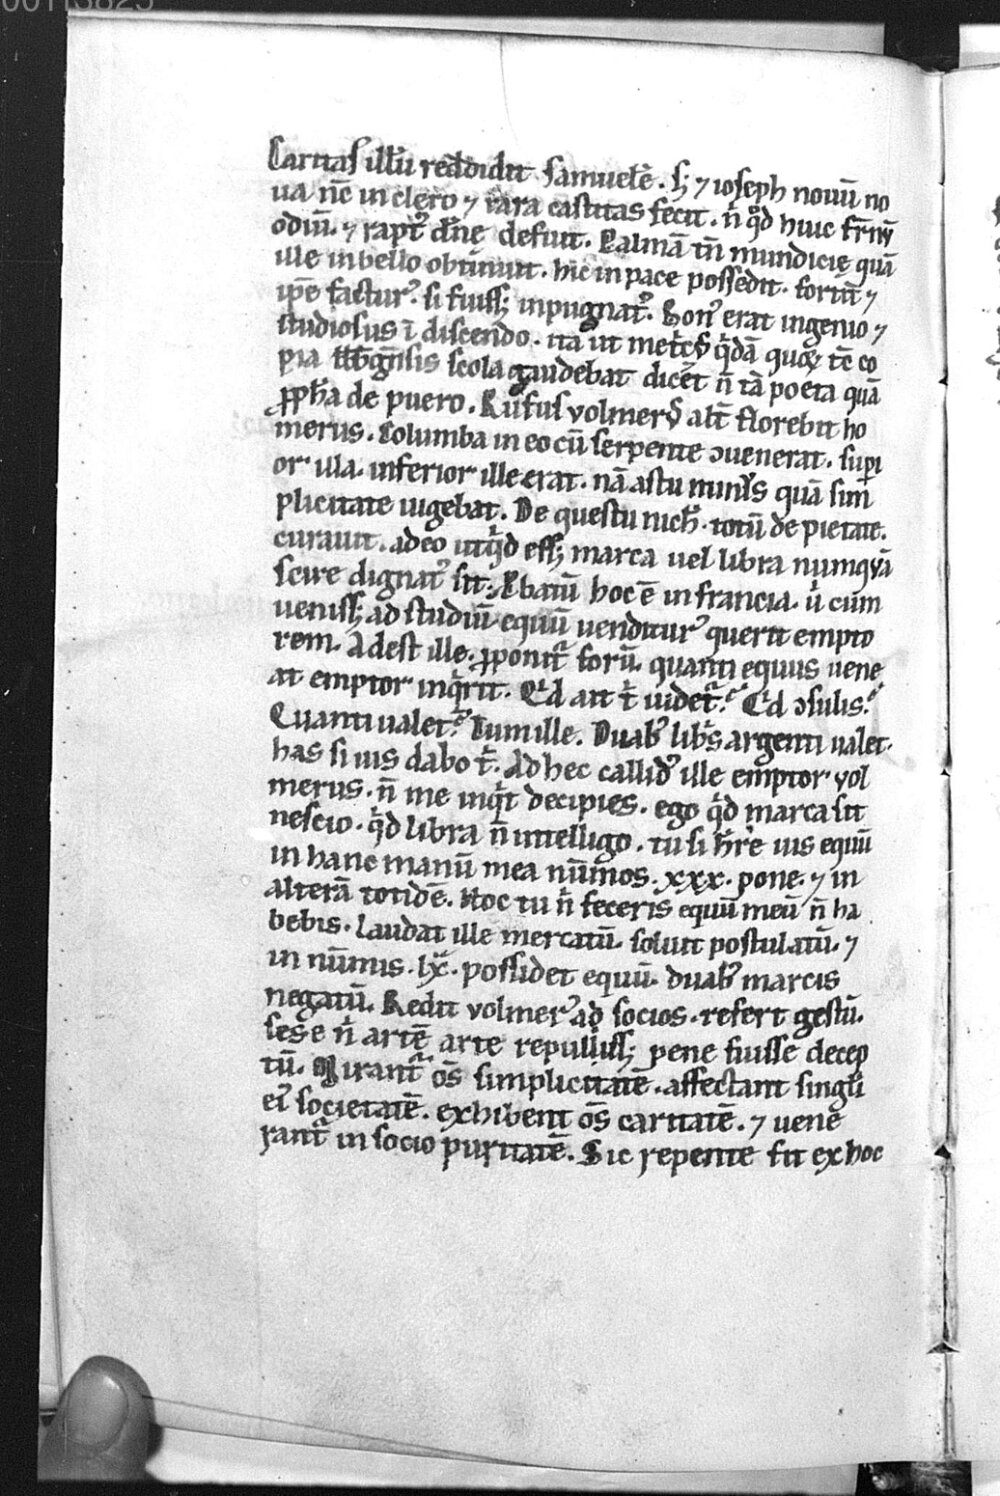 00113825
Caritas illū reddidit samuelē. sꝫ ⁊ ioseph nouū no
ua nc̄ in clero ⁊ rara castitas fecit. n̄ qd̓ huic fr̄nū
odiū. ⁊ raptꝰ dn̄ę defuit. Palmā tn̄ mundicię quā
ille in bello obtinuit. hic in pace possedit. fortiū ⁊
ip̄e facturꝰ. si fuissꝫ inpugnatꝰ. Bonꝰ erat ingenio ⁊
studiosus ī discendo. ita ut
pia scola gaudebat dicēt n̄ tā poeta quā
ꝓph̄a de puero. Rufus volmerꝰ alt̄ florebit ho
merus. Columba in eo cū serpente ꝯuenerat. supi
or illa. inferior ille erat. nā astu minꝰ quā sim
plicitate uigebat. De questu nich̓. totū de pietate.
curauit. adeo ut qd̓ essꝫ marca uel libra numquā
scire dignatꝰ sit. Ebatū hoc ē in francia. u̓ cum
uenissꝫ ad studiū. equū uenditurꝰ querit empto
rem. Adest ille. ꝓponit forū. quanti equus uene
at emptor inq̓rit. Qd̓ ait t̓ uidet̓? Qd̓ ꝯsulis?
Quanti ualet? Tum ille. Duabꝰ libͥs argenti ualet.
has si uis dabo t̓. Ad hec callidꝰ ille emptor vol
merus. n̄ me inqͥt decipies. ego qͥd marca sit
nescio. qͥd libra n̄ intelligo. tu si hr̄e uis equū
in hanc manū mea nūmos. xxx. pone. ⁊ in
alterā totidē. Hoc tu nͥ feceris equū meū n̄ ha
bebis. Laudat ille mercatū. soluit postulatū. ⁊
in nūmis. lx. possidet equū. duabꝰ marcis
negatū. Redit volmerꝰ ad socios. refert gestū.
sese nͥ artē arte repulissꝫ pene fuisse decep
tū. Mirant̓ oēs simplicitatē. affectant singl̓i
eiꝰ societatē. exhibent oēs caritatē. ⁊ uene
rant̓ in socio puritatē. Sic repente fit ex hoc